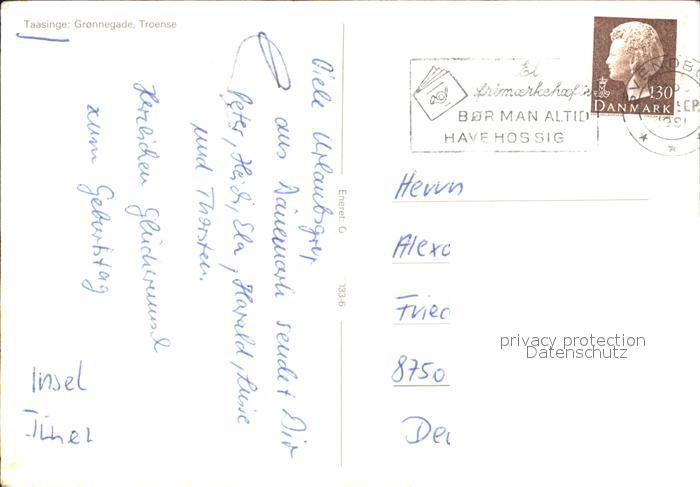 Taasinge: Grønnegade, Troense
Viele Urlaubsgrüße
aus Dänemark sendet Dir
Peter, Heidi, Ela, Harald, Luise
und Thorsten.
Herzlichen Glückwunsch
zum Geburtstag
Insel
Eneret: G
133-6
Et
frimærkehæfte
BØR MAN ALTID
HAVE HOS SIG
130
DANMARK
SVENDB
SEP
1981
Herrn
Alexa
Fried
8750
privacy protection
Datenschutz